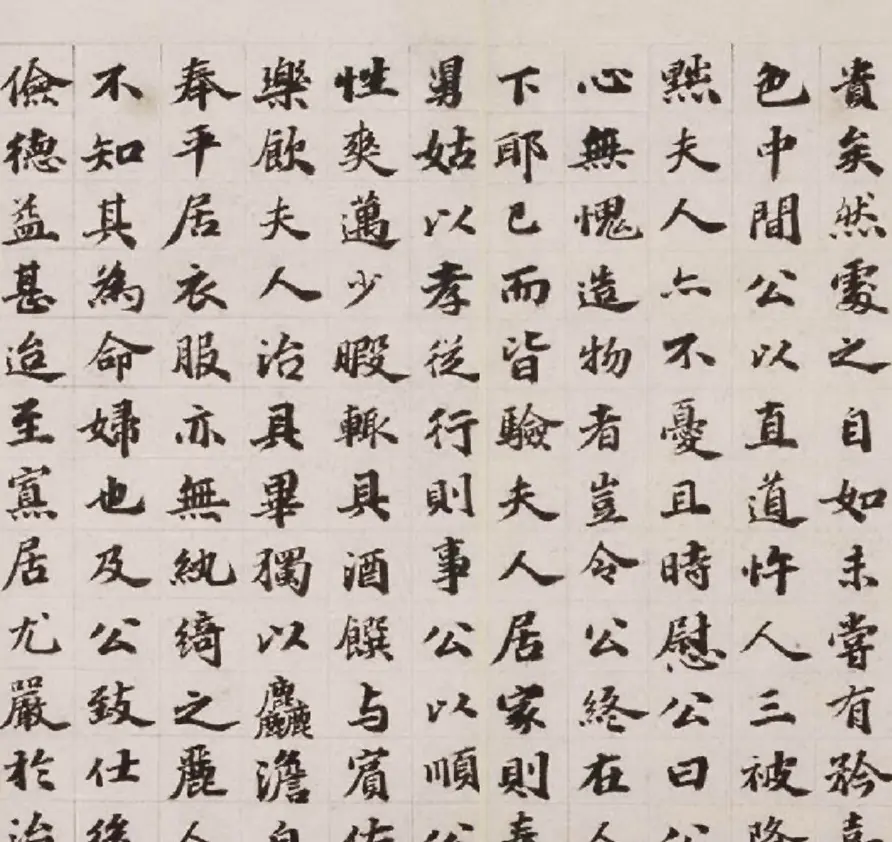 貴矣然處之自如未嘗有矜喜
色中間公以直道忤人三被降
黜夫人亦不憂且時慰公曰公
心無愧造物者豈令公終在人
下耶已而皆驗夫人居家則奉
舅姑以孝從行則事公以順公
性爽邁少暇輒具酒饌与賓佐
樂飲夫人治具畢獨以麤澹自
奉平居衣服亦無紈綺之麗人
不知其為命婦也及公致仕後
儉德益甚迨至寡居尤嚴於治